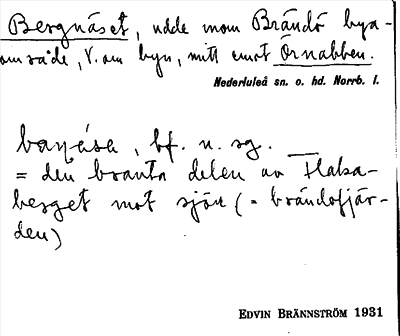 Bergnäset, udde inom Brändö bya-
område, V. om byn, mitt emot Örnabben.
Nederluleå sn. o. hd. Norrb. l.
bf. n. sg.
= den branta delen av Flata-
berget mot sjön (= brändöfjär-
den)
EDVIN BRÄNNSTRÖM 1931